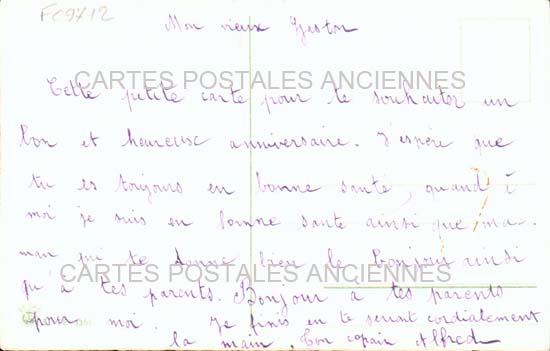 FC9712
Mon vieux Geston
CARTES POSTALES ANCIENNES
Cette petite carte pour te souhaiter un
bon et heureuse anniversaire. J'espère que
tu es toujours en bonne santé, quand à
moi je suis en bonne sante ainsi que ma-
man qui te donne bien le bonjour ainsi
CARTES POSTALES ANCIENNES
qu'à tes parents. Bonjour à tes parents
pour moi. Je finis en te serant cordialement
la main. Ton copain Alfred